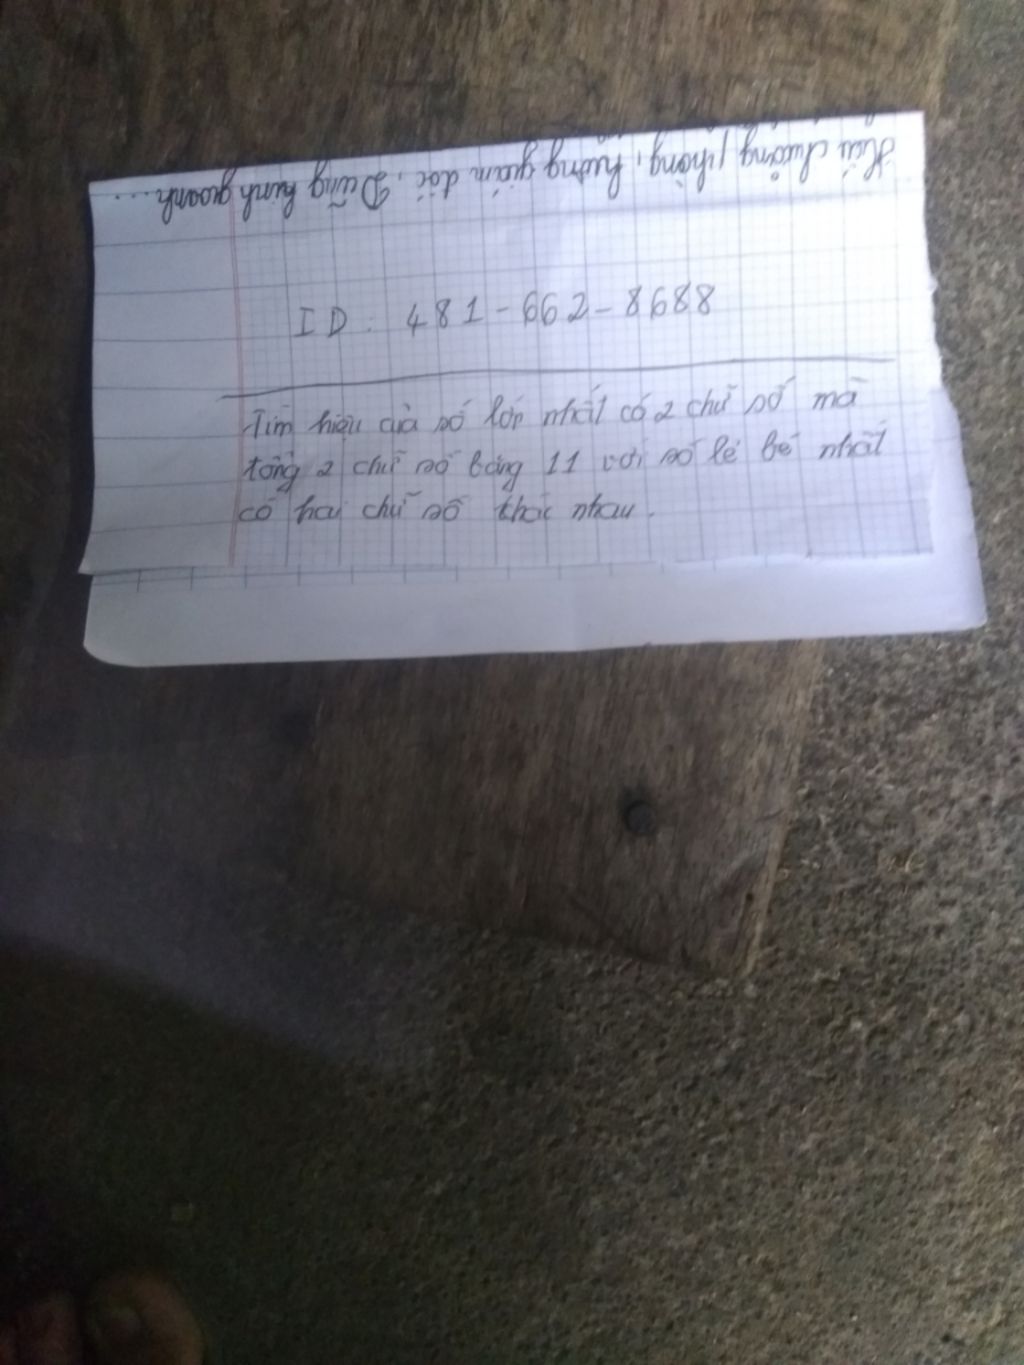 Hiệu trưởng, phòng, trưởng giám đốc, Dũng hinh quanh....
ID: 481-662-8688
Tìm hiệu của số lớn nhất có 2 chữ số mà
tổng 2 chữ số bằng 11 với số lẻ bé nhất
có hai chữ số khác nhau.